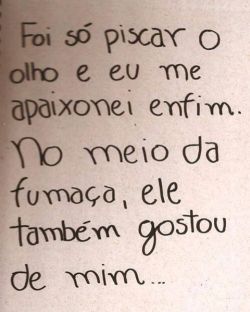 Foi só piscar o
olho e eu me
apaixonei enfim.
No meio da
fumaça, ele
também gostou
de mim...